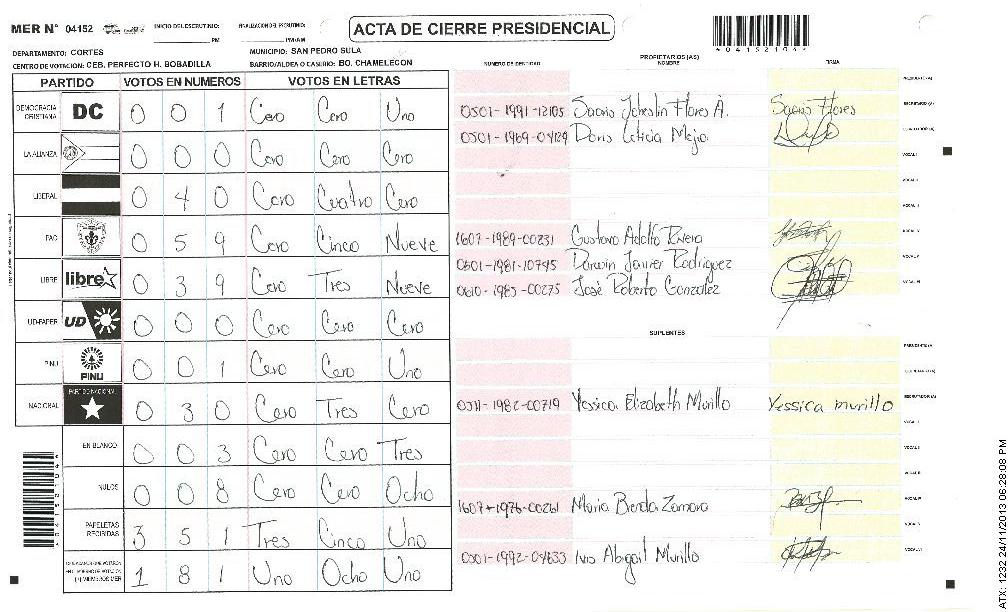 MER Nº 04152 INICIO DEL ESCRUTINIO: FINALIZACION DEL ESCRUTINIO:
PM PM/AM
ACTA DE CIERRE PRESIDENCIAL
DEPARTAMENTO: CORTES MUNICIPIO: SAN PEDRO SULA
CENTRO DE VOTACION: CEB. PERFECTO H. BOBADILLA BARRIO/ALDEA O CASERIO: BO. CHAMELECON
PARTIDO VOTOS EN NUMEROS VOTOS EN LETRAS
DEMOCRACIA CRISTIANA DC 0 0 1 Cero Cero Uno
LA ALIANZA 0 0 0 Cero Cero Cero
LIBERAL 0 4 0 Cero Cuatro Cero
PAC 0 5 9 Cero Cinco Nueve
LIBRE libre 0 3 9 Cero Tres Nueve
UD-FAPER UD 0 0 0 Cero Cero Cero
PINU PINU 0 0 1 Cero Cero Uno
NACIONAL PARTIDO NACIONAL 0 3 0 Cero Tres Cero
EN BLANCO 0 0 3 Cero Cero Tres
NULOS 0 0 8 Cero Cero Ocho
PAPELETAS RECIBIDAS 3 5 1 Tres Cinco Uno
1 8 1 Uno Ocho Uno
PROPIETARIOS (AS)
NUMERO DE IDENTIDAD NOMBRE FIRMA
PRESIDENTE (A)
0501-1991-12105 Flores A. Flores SECRETARIO (A)
0501-1969-04129 Doris Leticia Mejia ESCRUTADOR (A)
VOCAL I
VOCAL II
VOCAL III
1607-1989-00231 Gustavo Adolfo Rivera VOCAL IV
0501-1981-10745 Darwin Javier Rodriguez VOCAL V
0610-1983-00275 José Roberto Gonzalez VOCAL VI
SUPLENTES
PRESIDENTE (A)
SECRETARIO (A)
0511-1982-00719 Yessica Elizabeth Murillo Yessica murillo ESCRUTADOR (A)
VOCAL I
VOCAL II
VOCAL III
1607-1976-00261 Maria Zamora VOCAL IV
VOCAL V
0501-1992-04633 Abigail Murillo VOCAL VI
ATX: 1232 24/11/2013 06:28:08 PM